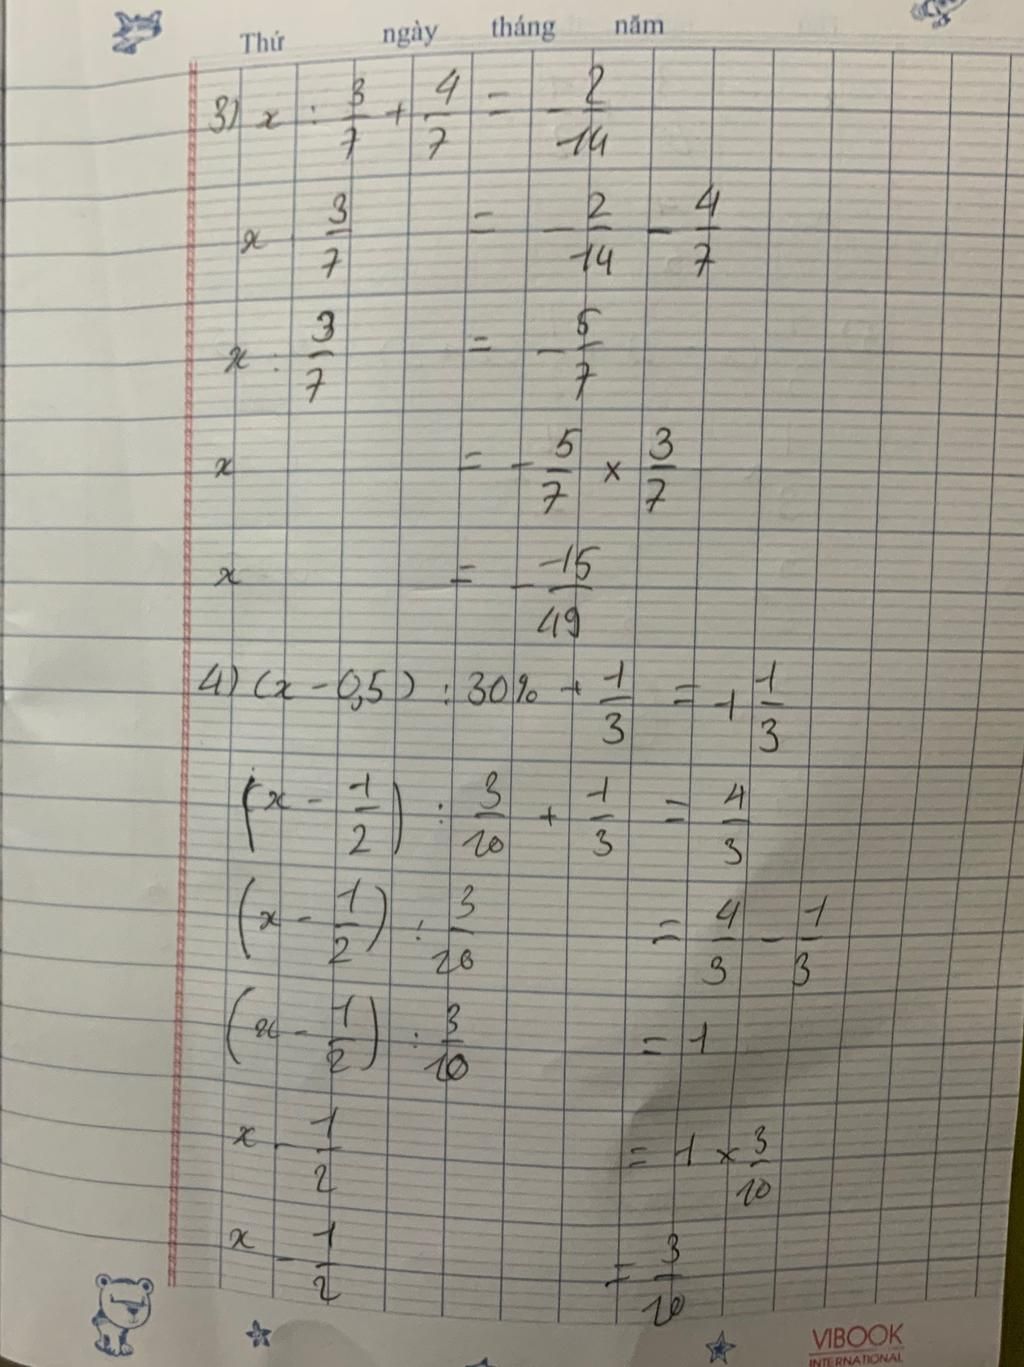 Thứ ngày tháng năm
3) x : 3/7 + 4/7 = - 2/14
x 3/7 = - 2/14 - 4/7
x : 3/7 = - 5/7
x = - 5/7 × 3/7
x = - 15/49
4) (x - 0,5) : 30% + 1/3 = 1 1/3
(x - 1/2) : 3/10 + 1/3 = 4/3
(x - 1/2) : 3/10 = 4/3 - 1/3
(x - 1/2) : 3/10 = 1
x - 1/2 = 1 × 3/10
x - 1/2 = 3/10
VIBOOK
INTERNATIONAL